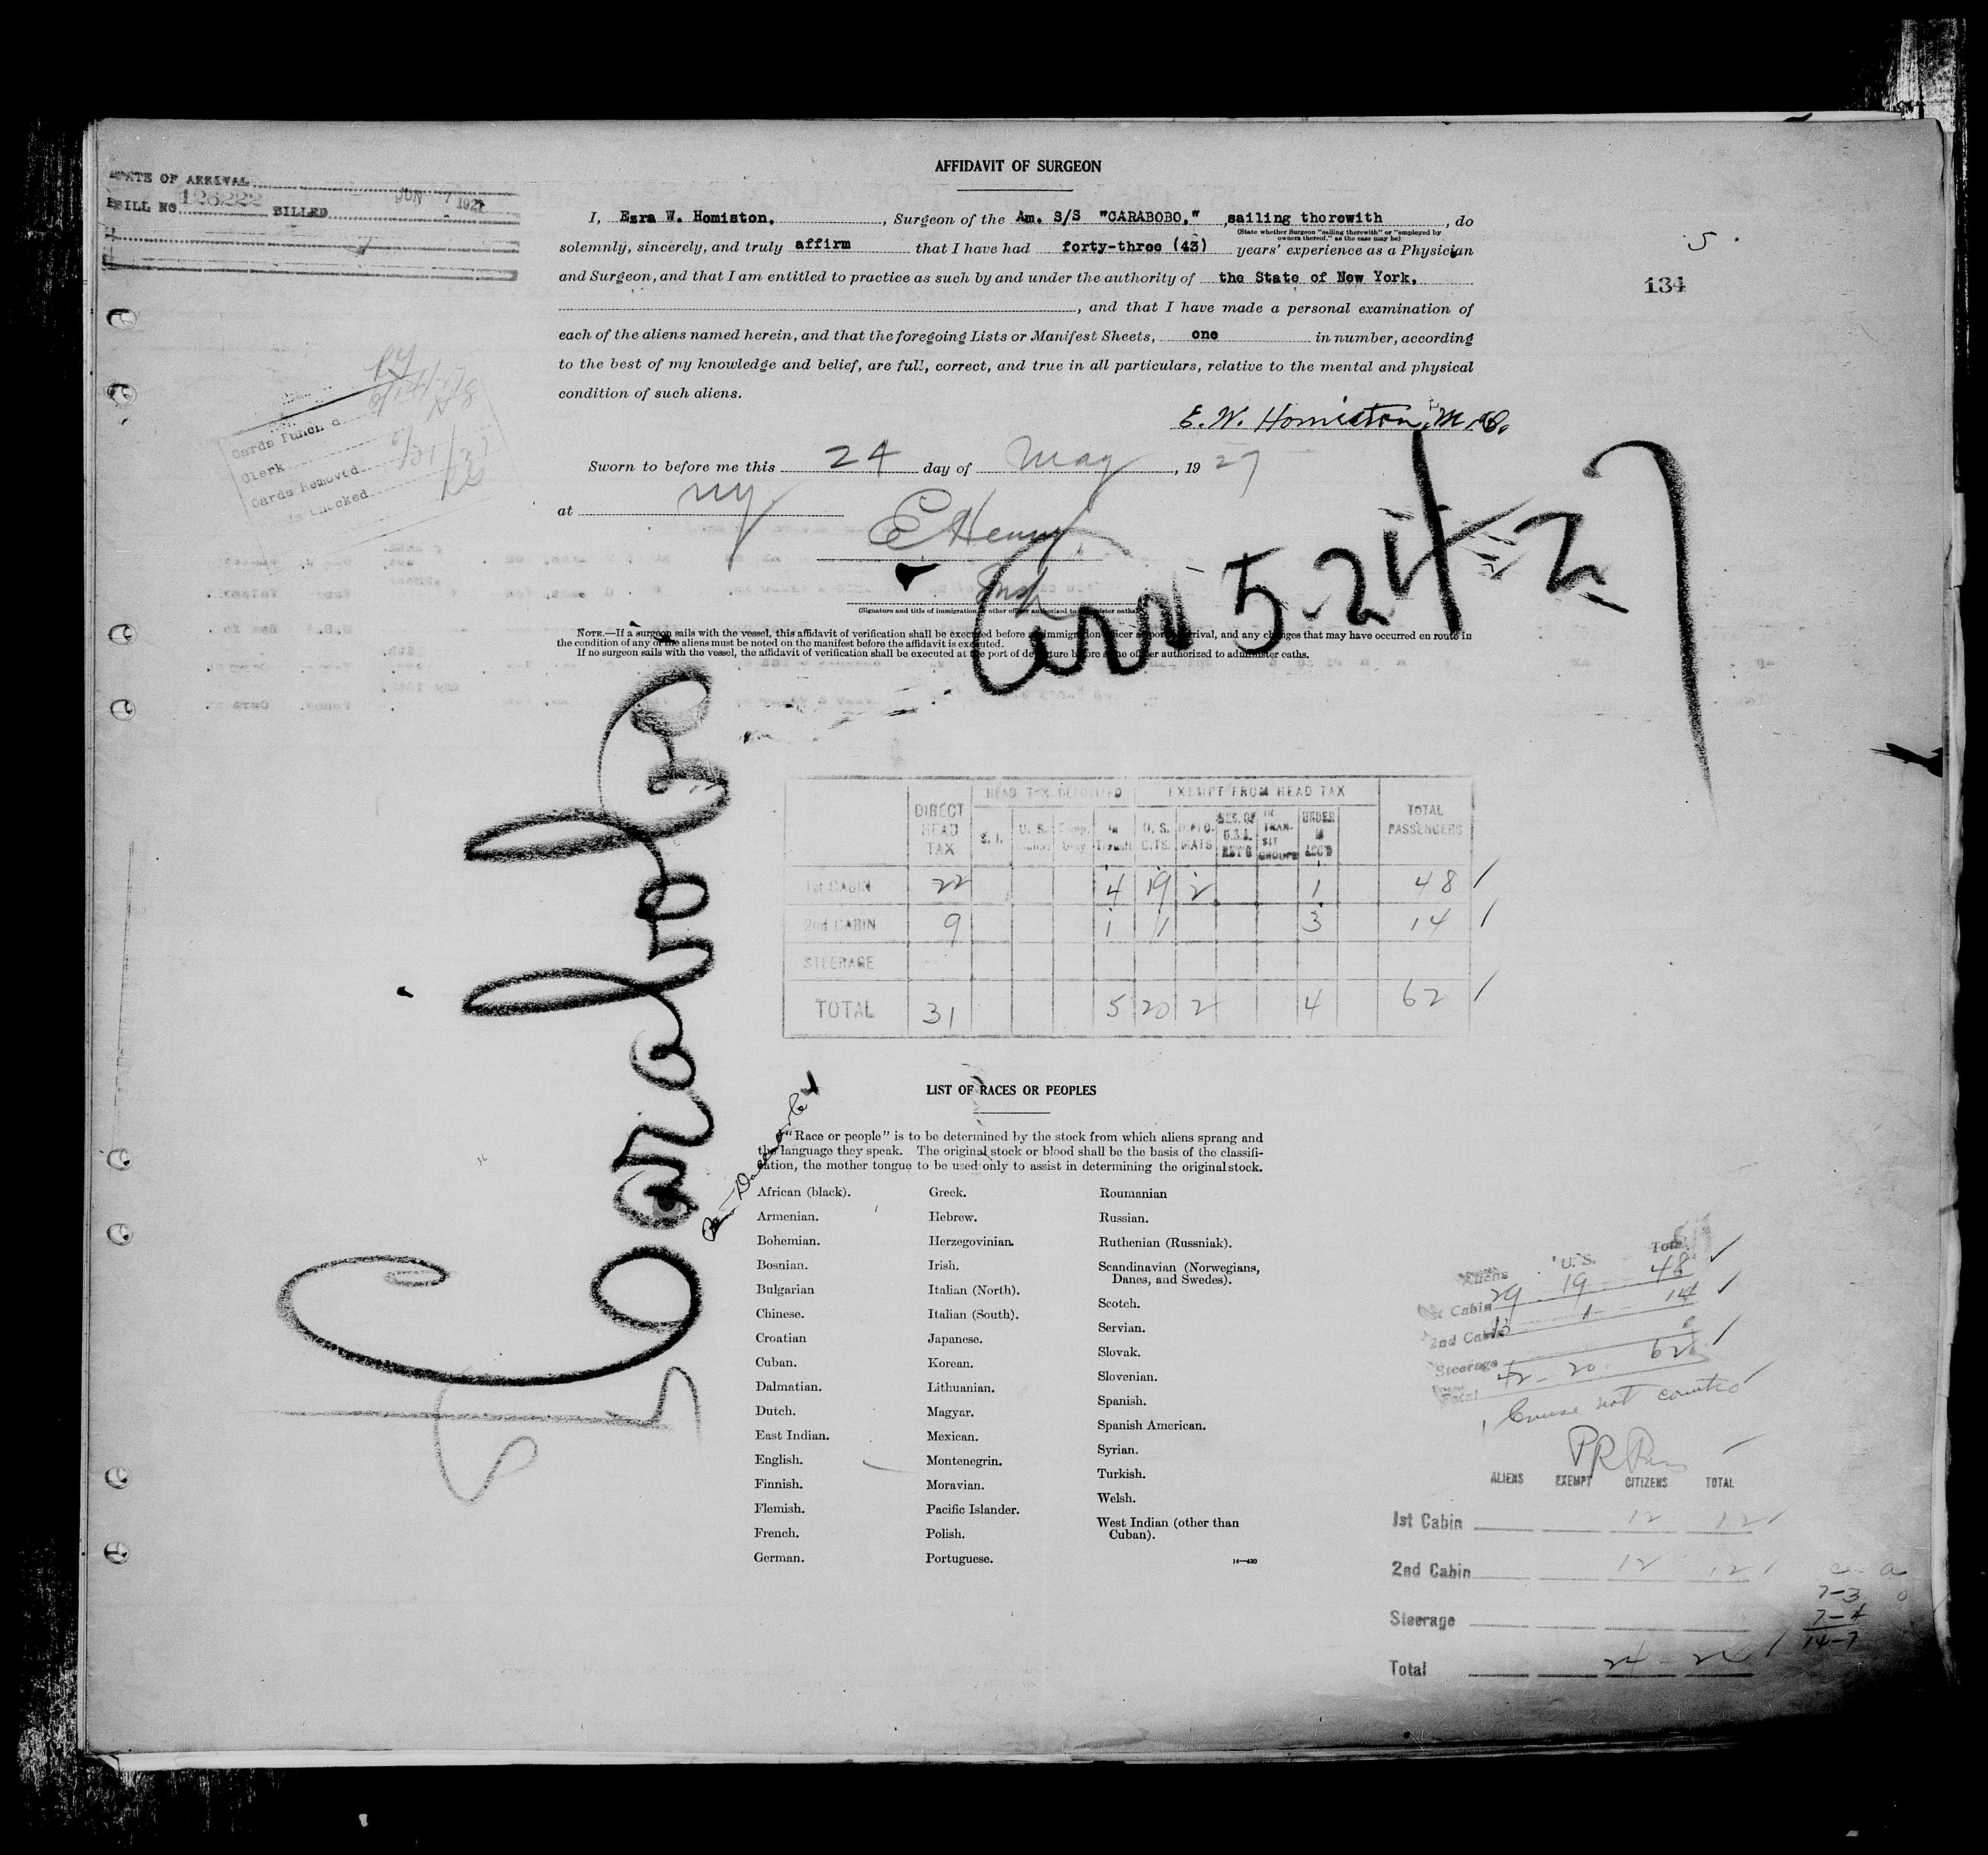 AFFIDAVIT OF SURGEON
DATE OF ARRIVAL
BILL NO. 126222 BILLED JUN 7 1927
I, Ezra W. Homiston, , Surgeon of the Am. S/S "CARABOBO," , sailing therewith , do
(State whether Surgeon "sailing therewith" or "employed by
owners thereof," as the case may be)
solemnly, sincerely, and truly affirm that I have had forty-three (43) years' experience as a Physician
and Surgeon, and that I am entitled to practice as such by and under the authority of the State of New York,
, and that I have made a personal examination of
each of the aliens named herein, and that the foregoing Lists or Manifest Sheets, one in number, according
to the best of my knowledge and belief, are full, correct, and true in all particulars, relative to the mental and physical
condition of such aliens.
5
134
E. W. Homiston, M.D.
Cards Punch d
Clerk
Cards Removed
Checked
Sworn to before me this 24 day of May , 19 27
at NY
E Henry
Insp
(Signature and title of immigration or other officer authorized to administer oaths)
Arr 5-24-27
NOTE.—If a surgeon sails with the vessel, this affidavit of verification shall be executed before an immigration officer at port of arrival, and any changes that may have occurred en route in
the condition of any of the aliens must be noted on the manifest before the affidavit is executed.
If no surgeon sails with the vessel, the affidavit of verification shall be executed at the port of departure before some officer authorized to administer oaths.
Carabobo
HEAD TAX DEPOSITED EXEMPT FROM HEAD TAX
DIRECT HEAD TAX S. I. U. S. Temp. Stay In Transit U. S. CITS. DIPLO- MATS RES. OF U.S.A. RET'G IN TRAN- SIT GROUPS UNDER 16 ACC'D TOTAL PASSENGERS
1st CABIN 22 4 19 2 1 48
2nd CABIN 9 1 1 3 14
STEERAGE
TOTAL 31 5 20 2 4 62
LIST OF RACES OR PEOPLES
"Race or people" is to be determined by the stock from which aliens sprang and
the language they speak. The original stock or blood shall be the basis of the classifi-
cation, the mother tongue to be used only to assist in determining the original stock.
African (black).
Armenian.
Bohemian.
Bosnian.
Bulgarian
Chinese.
Croatian
Cuban.
Dalmatian.
Dutch.
East Indian.
English.
Finnish.
Flemish.
French.
German.
Greek.
Hebrew.
Herzegovinian.
Irish.
Italian (North).
Italian (South).
Japanese.
Korean.
Lithuanian.
Magyar.
Mexican.
Montenegrin.
Moravian.
Pacific Islander.
Polish.
Portuguese.
Roumanian
Russian.
Ruthenian (Russniak).
Scandinavian (Norwegians,
Danes, and Swedes).
Scotch.
Servian.
Slovak.
Slovenian.
Spanish.
Spanish American.
Syrian.
Turkish.
Welsh.
West Indian (other than
Cuban).
14—430
Aliens U. S. Total
1st Cabin 29 19 48
2nd Cabin 13 1 14
Steerage
Total 42 - 20 - 62
not counted
PR
ALIENS EXEMPT CITIZENS TOTAL
1st Cabin 12 12
2nd Cabin 12 12
Steerage
Total 24 - 24
c a
7-3 0
7-4
14-7